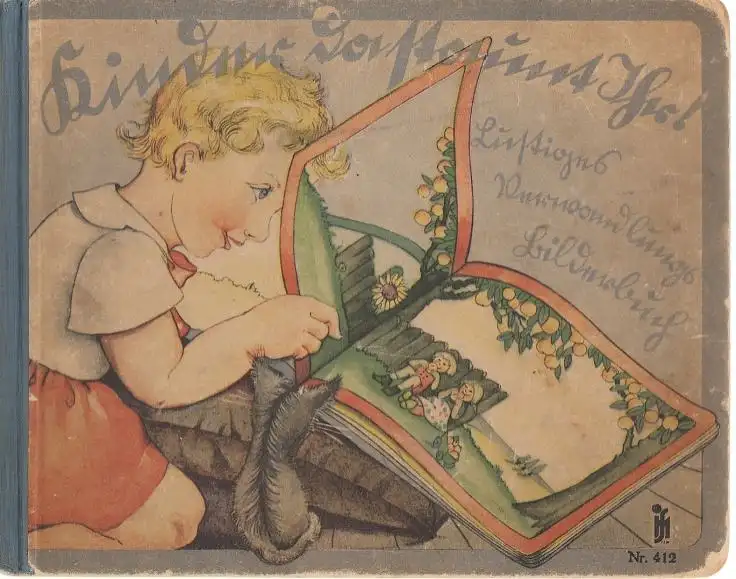 Kinder da staunt Ihr!
Lustiges
Verwandlungs
Bilderbuch
Nr. 412